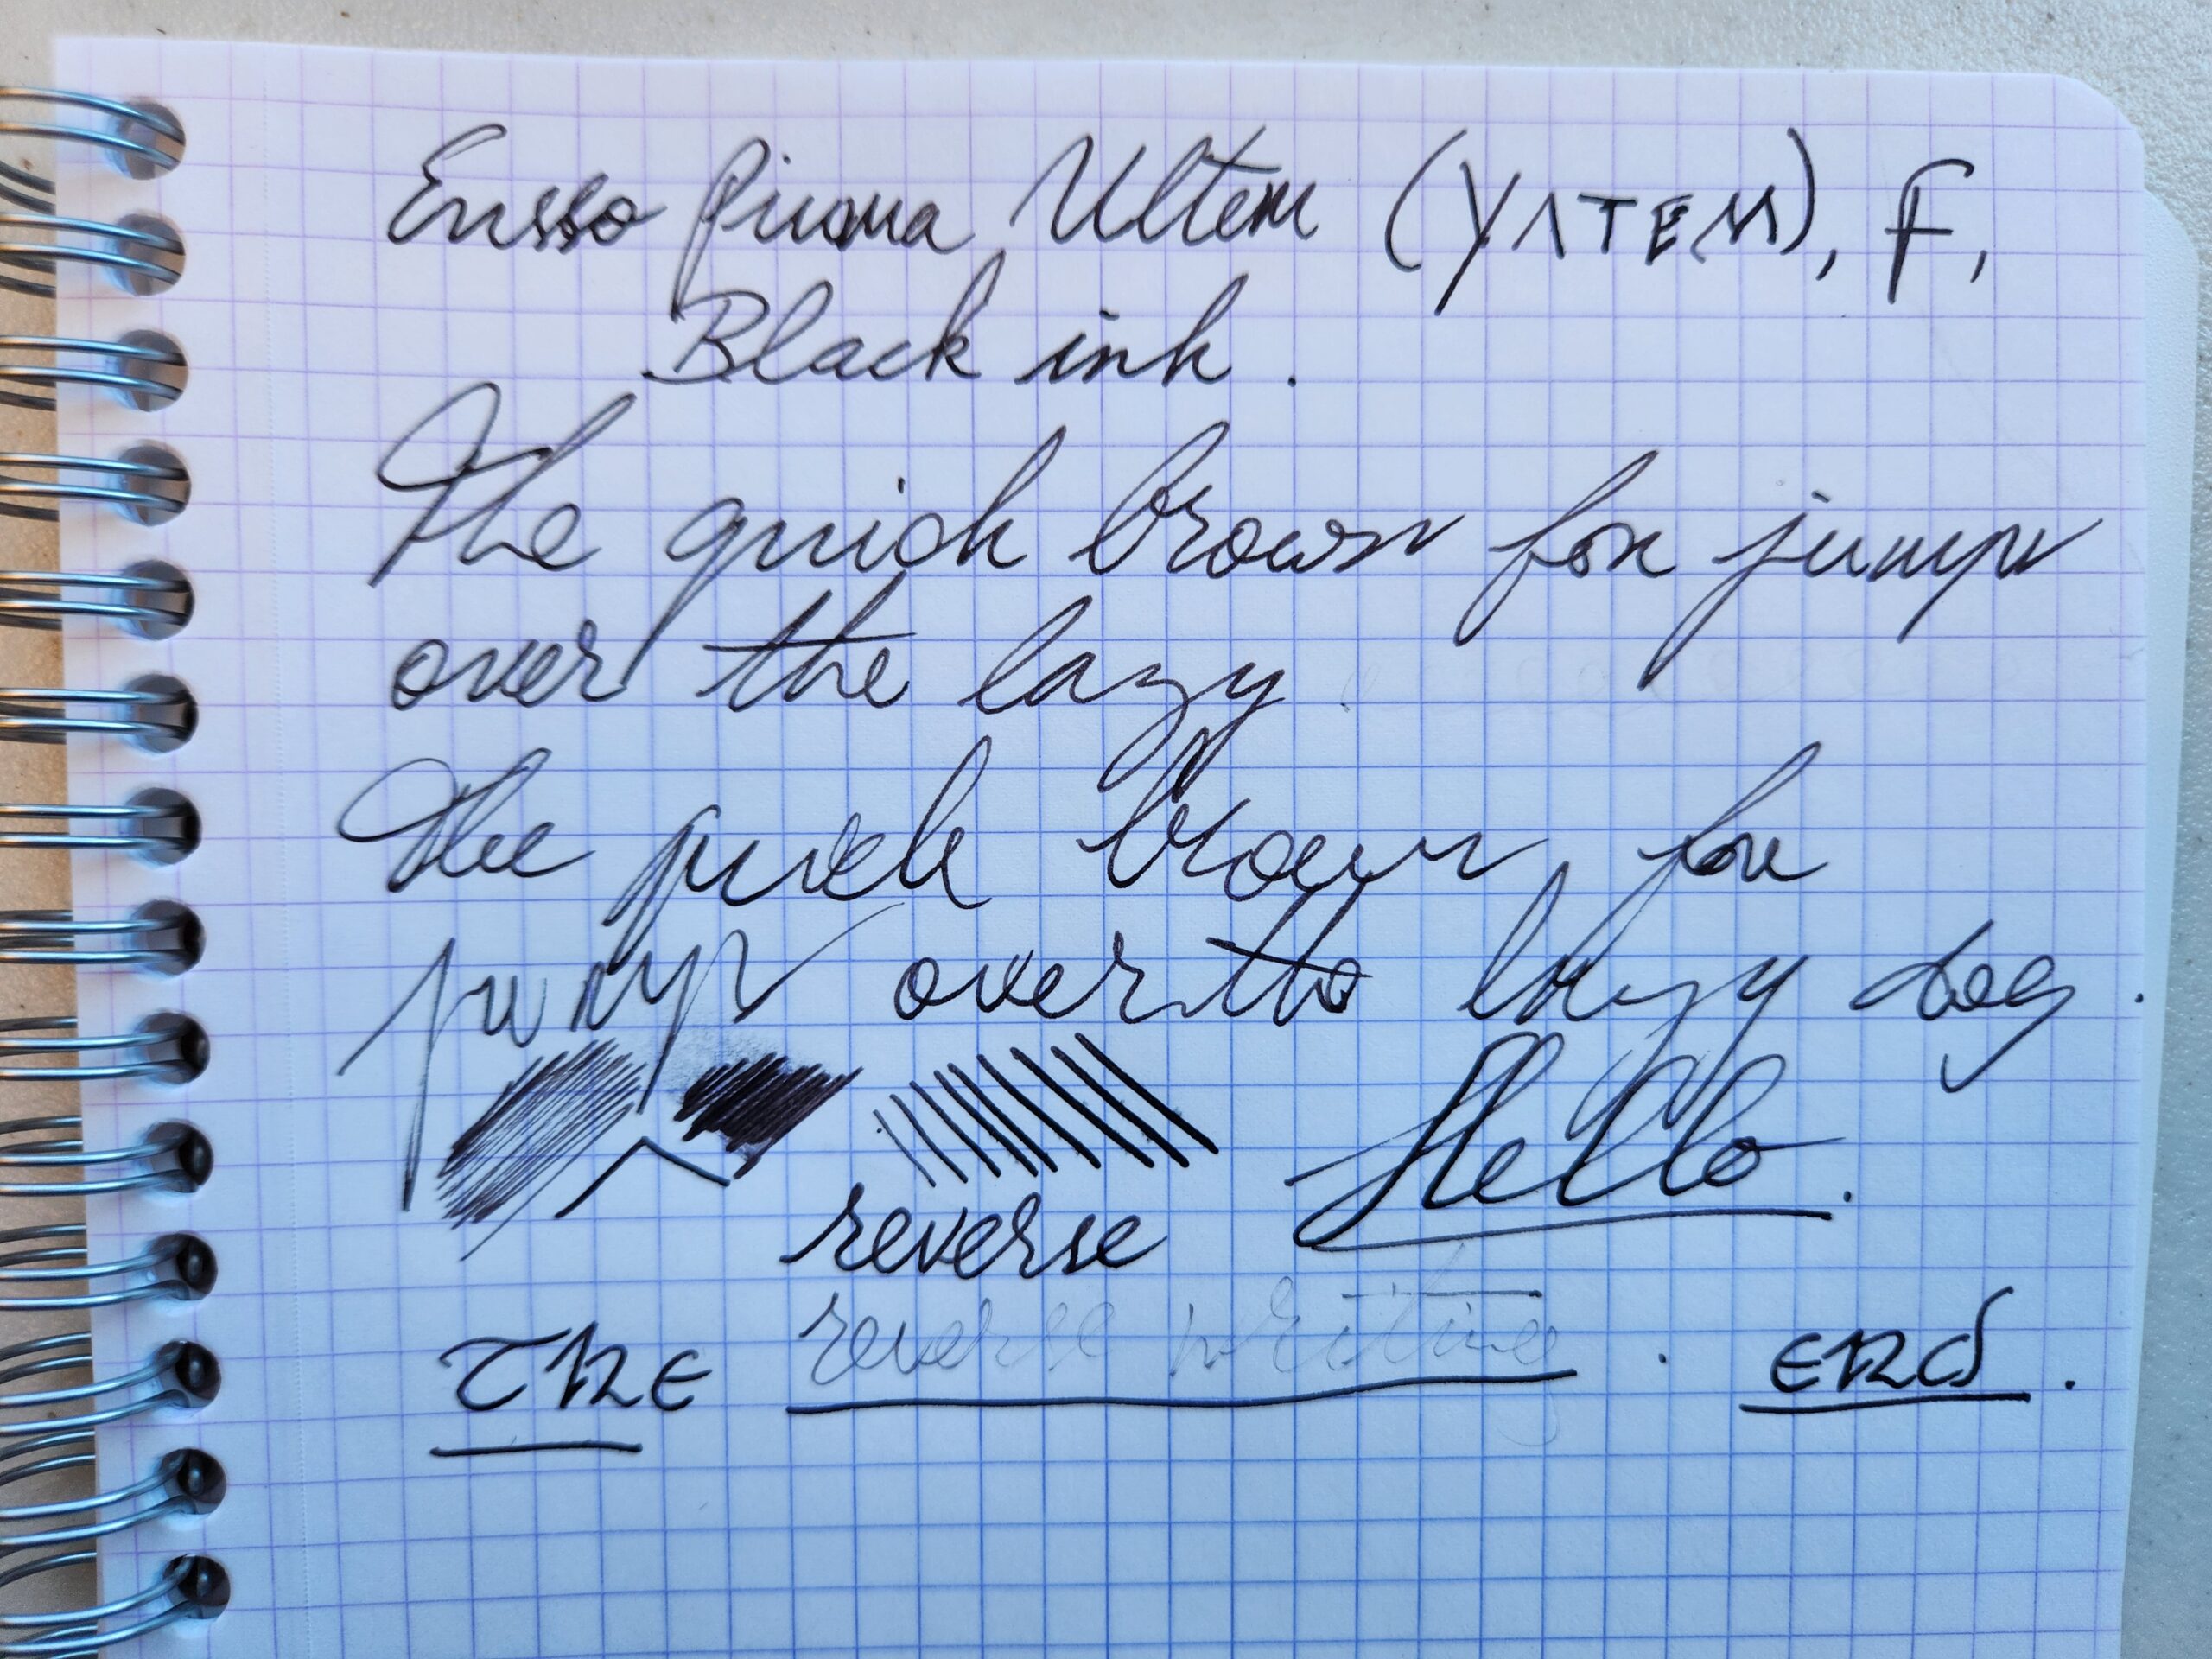 Ensso Piuma Ultem (YΛTEM), F,
Black ink.
The quick brown fox jumps
over the lazy
The quick brown fox
jumps over the lazy dog.
Hello.
reverse
reverse writing.
The end.